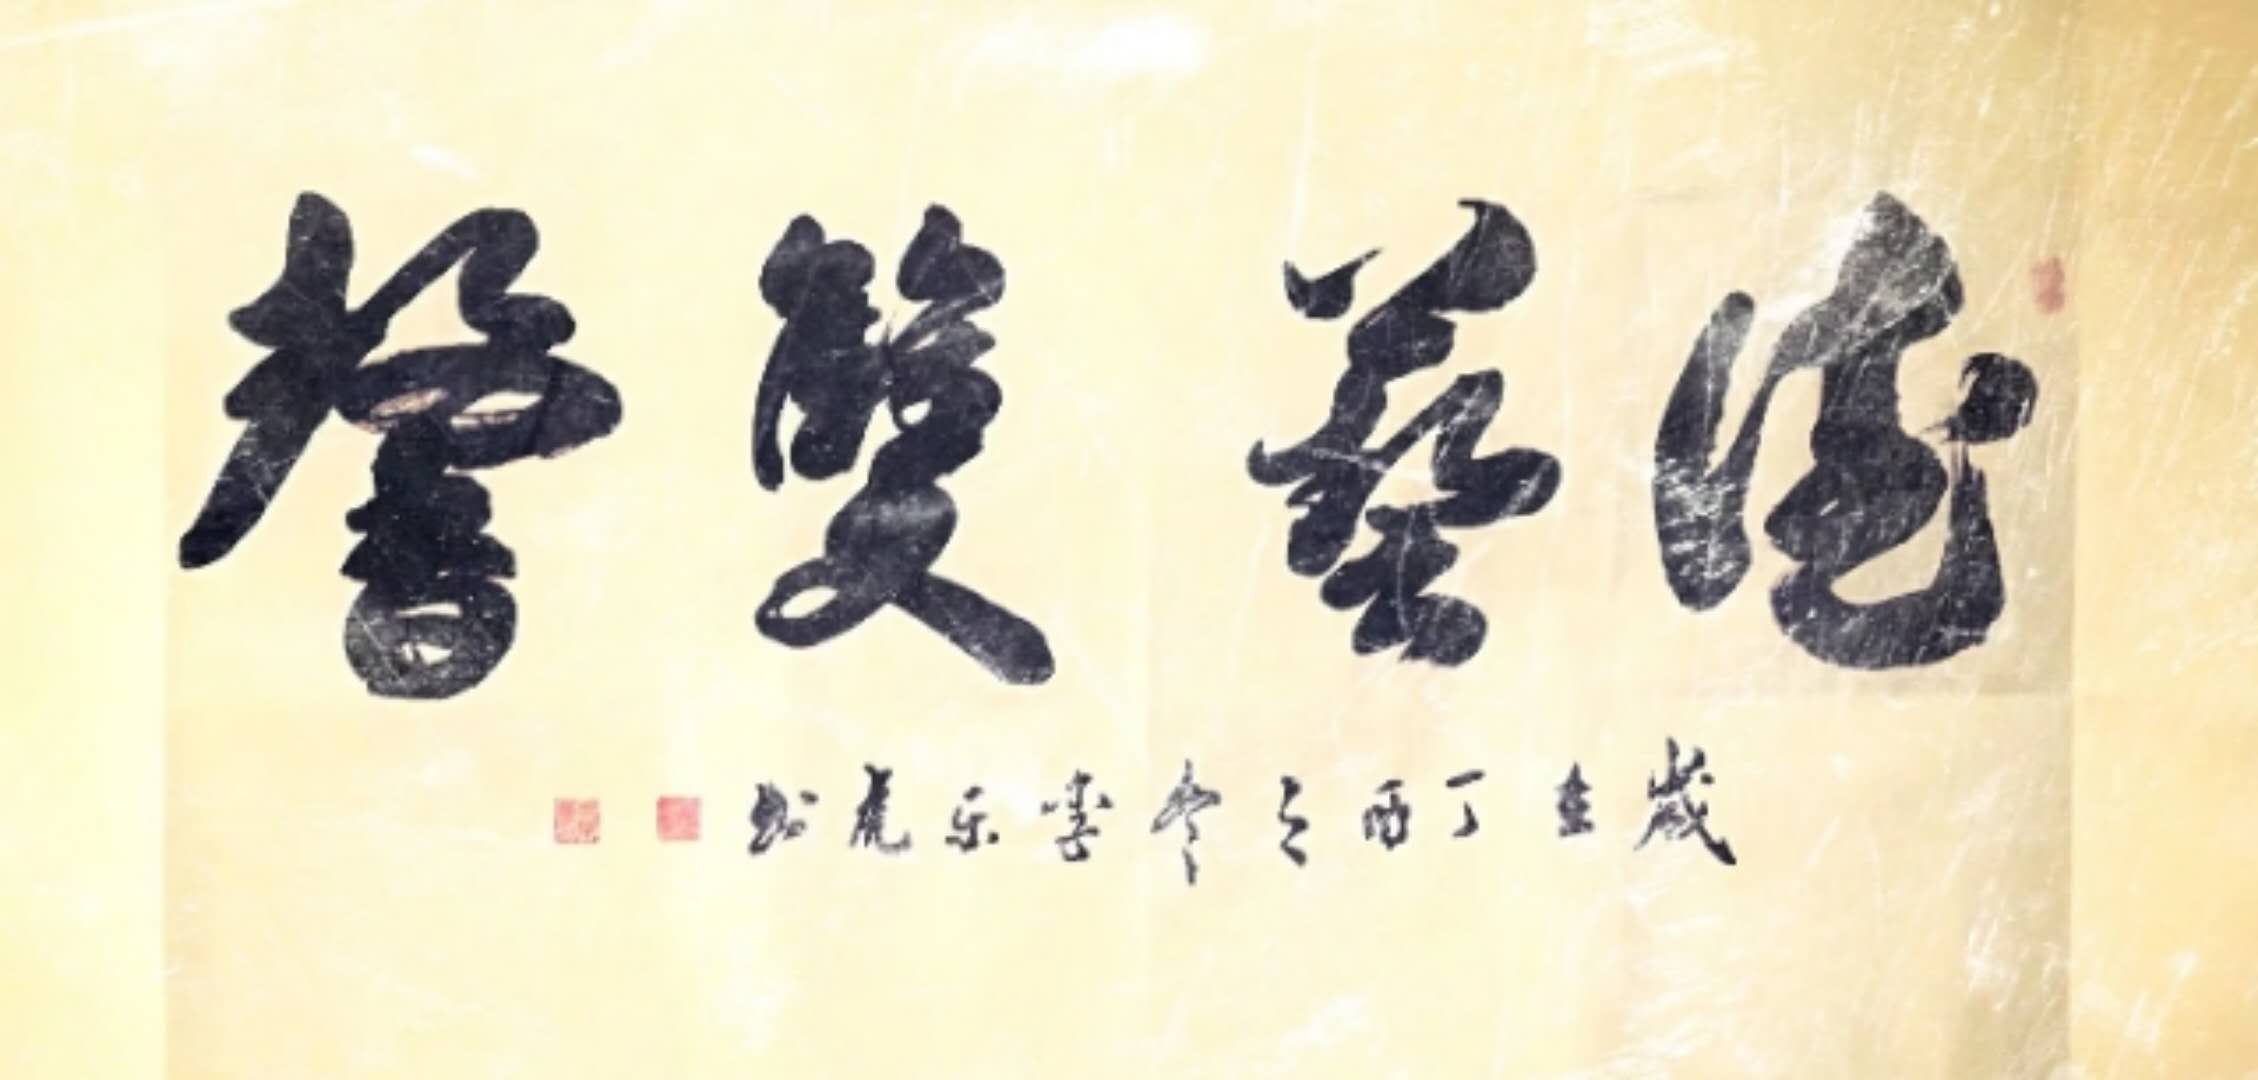 德藝雙馨
歲在丁酉之冬李乐虎